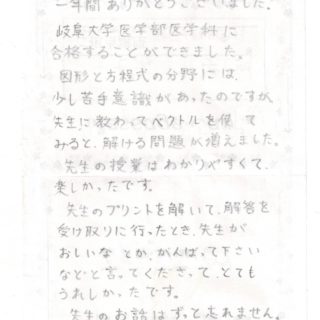 一年間ありがとうございました。
岐阜大学医学部医学科に
合格することができました。
図形と方程式の分野には、
少し苦手意識があったのですが、
先生に教わってベクトルを使って
みると、解ける問題が増えました。
先生の授業はわかりやすくて、
楽しかったです。
先生のプリントを解いて、解答を
受け取りに行ったとき、先生が
おしいな とか、がんばって下さい
などと言ってくださって、とても
うれしかったです。
先生のお話はずっと忘れません。